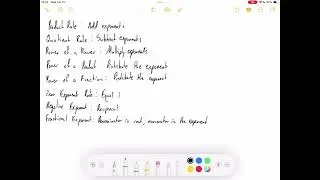 Product Rule : Add exponents
Quotient Rule : Subtract exponents
Power of a Power : Multiply exponents
Power of a Product : Distribute the exponent
Power of a Fraction : Distribute the exponent
Zero Exponent Rule : Equal 1
Negative Exponent : Reciprocal
Fractional Exponent : Denominator is root, numerator is the exponent